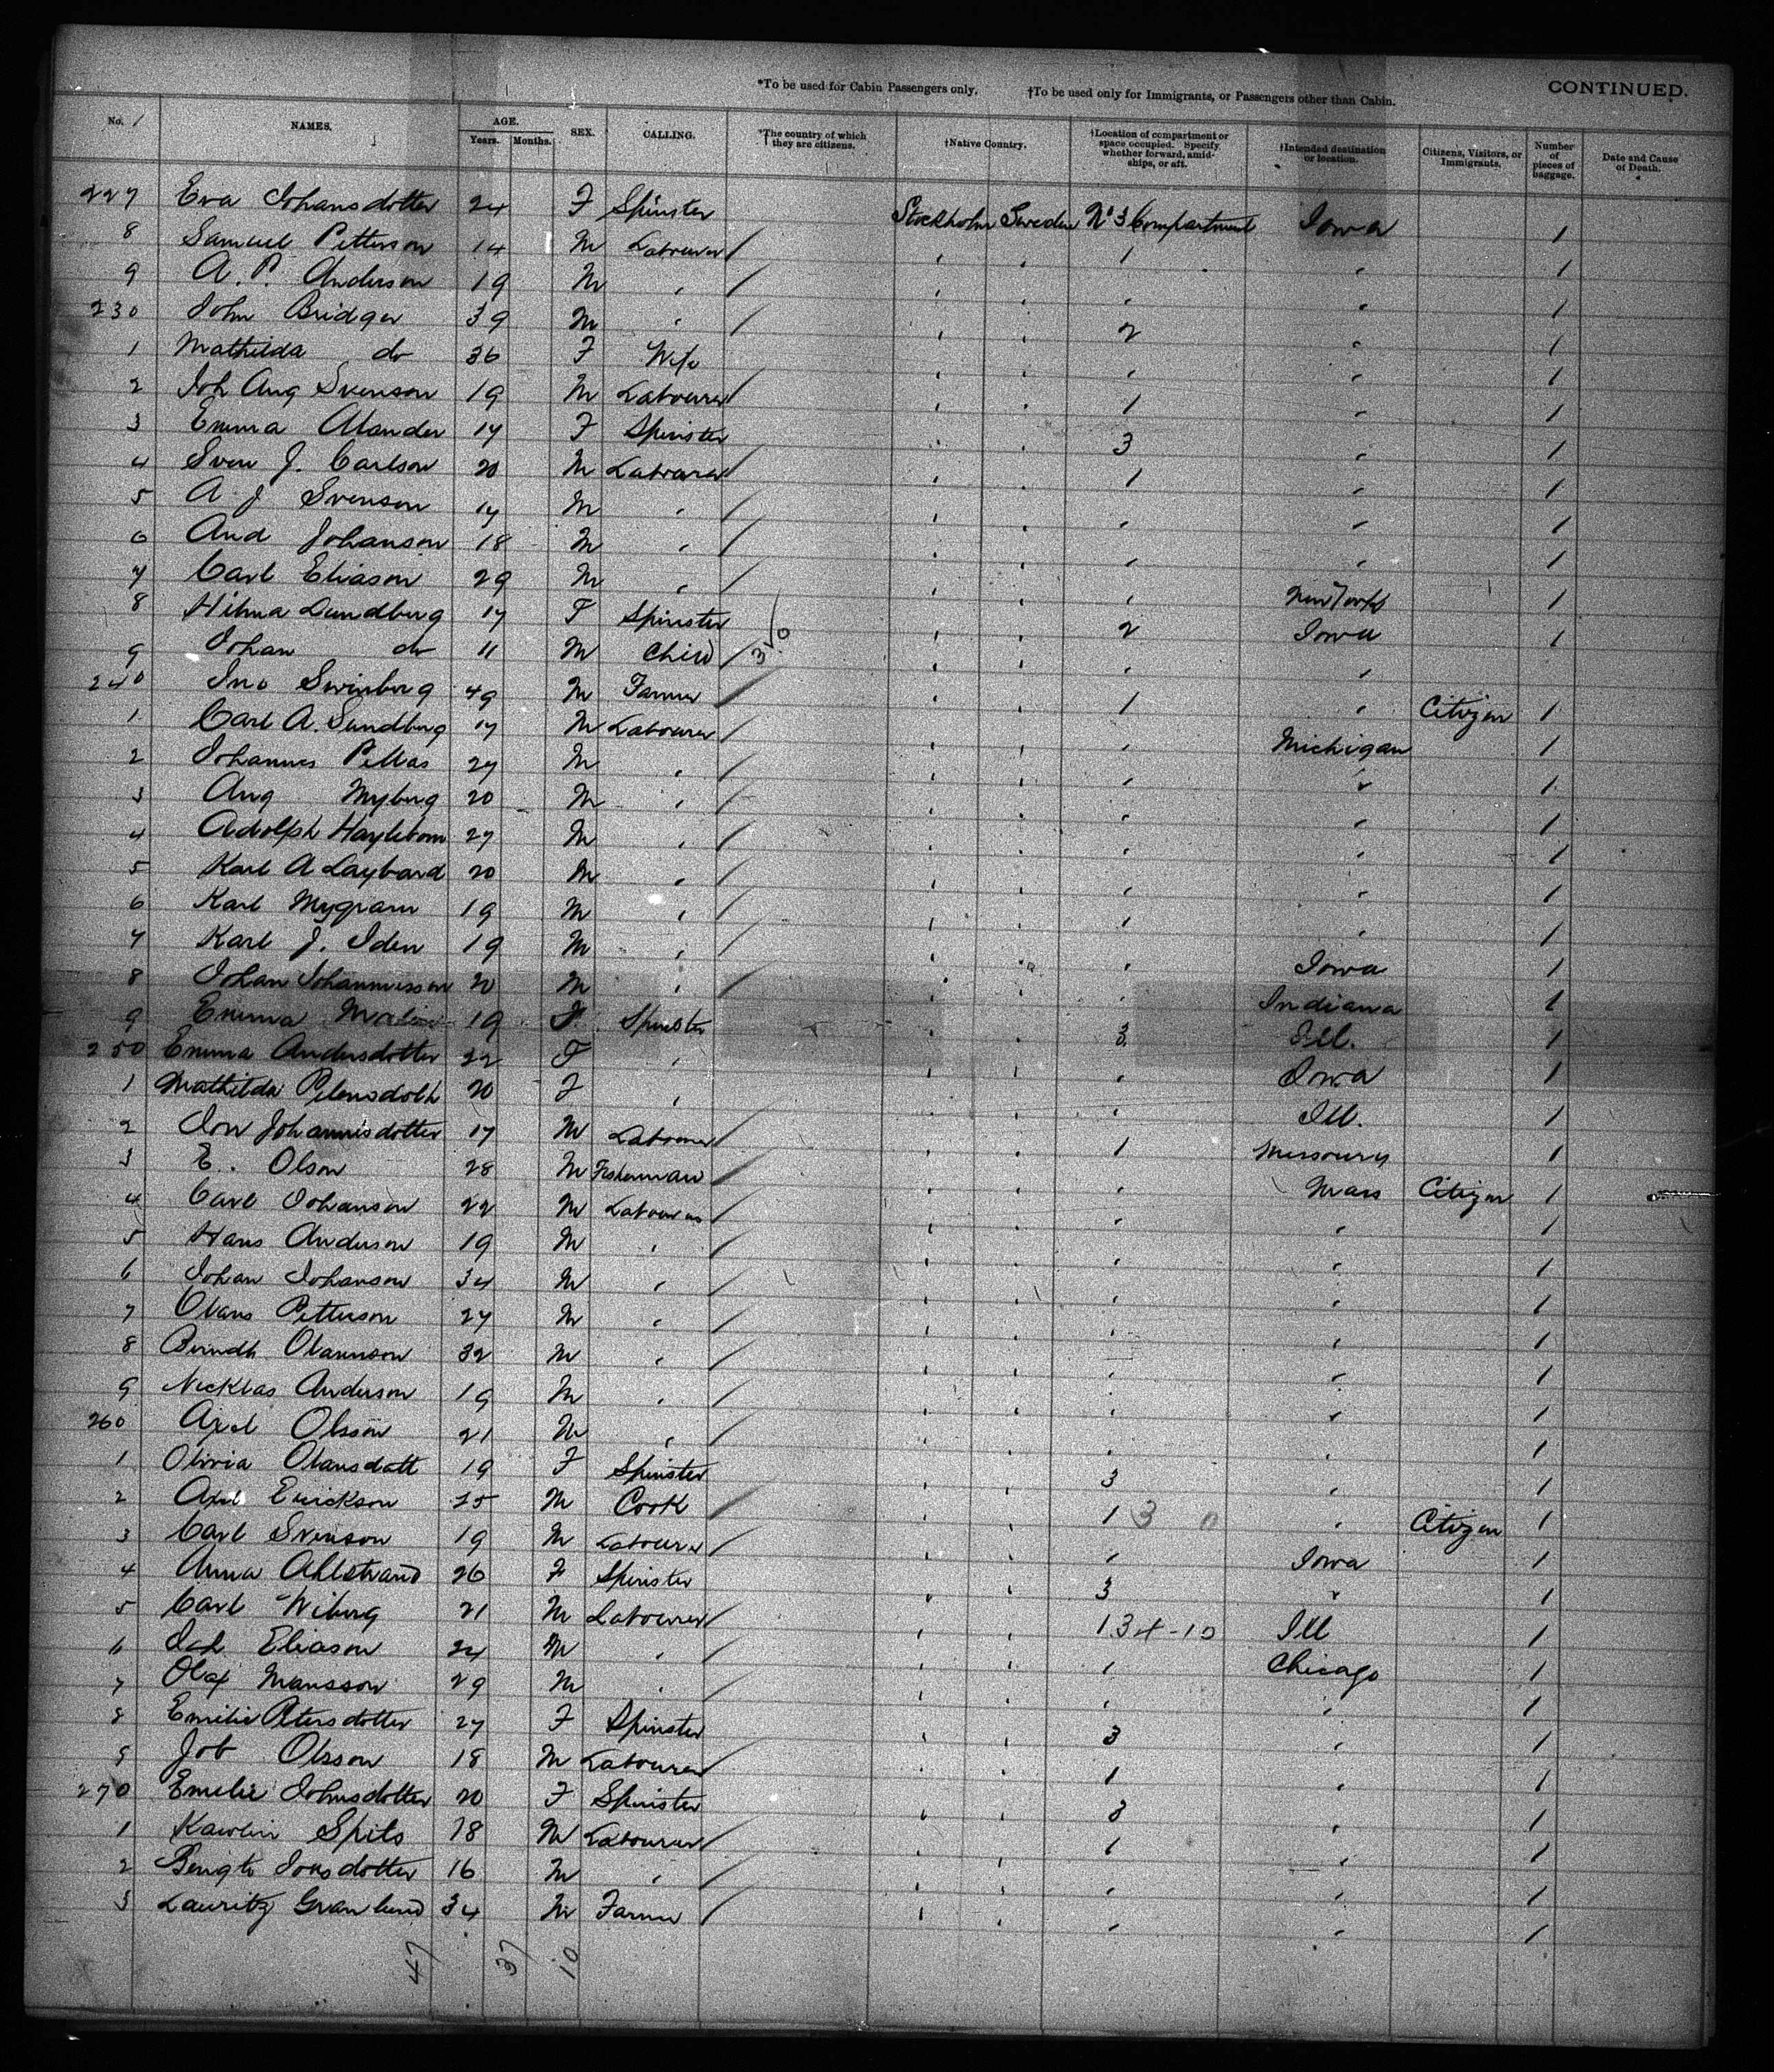 *To be used for Cabin Passengers only. †To be used only for Immigrants, or Passengers other than Cabin. CONTINUED.
No. NAMES. AGE. Years. Months. SEX. CALLING. *The country of which they are citizens. †Native Country. †Location of compartment or space occupied. Specify whether forward, amidships, or aft. †Intended destination or location. Citizens, Visitors, or Immigrants. Number of pieces of baggage. Date and Cause of Death.
227 Eva Johansdotter 24 F Spinster Stockholm Sweden No 3 Compartment Iowa 1
8 Samuel Petterson 14 M Labourer / " " 1 " 1
9 A. P. Anderson 19 M " / " " " " 1
230 John Bridger 39 M " / " " 2 " 1
1 Mathilda do 36 F Wife " " " " 1
2 Joh Aug Svenson 19 M Labourer / " " 1 " 1
3 Emma Alander 17 F Spinster " " 3 " 1
4 Sven J. Carlson 20 M Labourer / " " 1 " 1
5 A J Svenson 17 M " / " " " " 1
6 And Johanson 18 M " / " " " " 1
7 Carl Eliason 29 M " / " " " New York 1
8 Hilma Lundberg 17 F Spinster " " 2 Iowa 1
9 Johan do 11 M Child / " " " "
240 Jno Swinberg 49 M Farmer / " " 1 " Citizen 1
1 Carl A. Sundberg 17 M Labourer / " " " Michigan 1
2 Johannes 27 M " / " " " " 1
3 Aug Myberg 20 M " / " " " " 1
4 Adolph 27 M " / " " " " 1
5 Karl A 20 M " / " " " " 1
6 Karl 19 M " / " " " " 1
7 Karl J. Iden 19 M " / " " " Iowa 1
8 Johan Johannisson 20 M " / " " " Indiana 1
9 Emma 19 F Spinster " " 3 Ill. 1
250 Emma Andersdotter 22 F " " " " Iowa 1
1 Mathilda 20 F " " " " Ill. 1
2 Johannisdotter 17 M Labourer / " " 1 Missoury 1
3 E. Olson 28 M Fisherman / " " " Mass Citizen 1
4 Carl Johanson 22 M Labourer / " " " " 1
5 Hans Anderson 19 M " / " " " " 1
6 Johan Johanson 34 M " / " " " " 1
7 Olaus Petterson 27 M " / " " " " 1
8 Berndt Olausson 32 M " / " " " " 1
9 Nicklas Anderson 19 M " / " " " " 1
260 Axel Olsson 21 M " / " " " " 1
1 Olivia Olausdatt 19 F Spinster " " 3 " 1
2 Axel Erickson 25 M Cook / " " 1 3 0 " Citizen 1
3 Carl Svenson 19 M Labourer / " " " Iowa 1
4 Anna Ahlstrand 26 F Spinster " " 3 " 1
5 Carl Wiberg 21 M Labourer / " " 1 34-10 Ill 1
6 Eliason 24 M " / " " 1 Chicago 1
7 Olof Mansson 29 M " / " " " " 1
8 Emilie Petersdotter 27 F Spinster " " 3 " 1
9 Job Olsson 18 M Labourer / " " 1 " 1
270 Emelie Johnsdotter 20 F Spinster " " 3 " 1
1 Spits 18 M Labourer / " " 1 " 1
2 Bengta Jonsdotter 16 M " / " " " " 1
3 Lauritz Granlund 34 M Farmer / " " " " 1
47 37 10